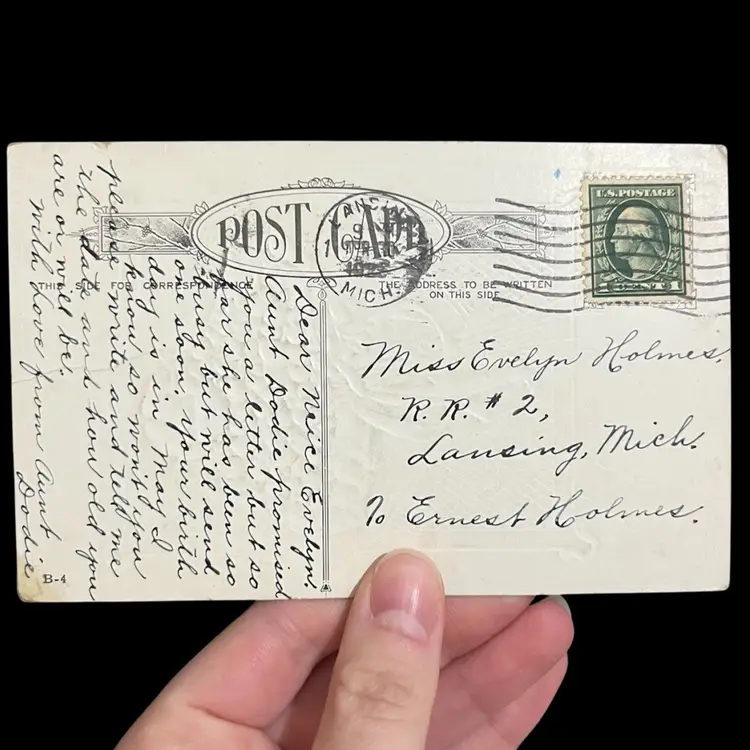 POST CARD
THIS SIDE FOR CORRESPONDENCE
THE ADDRESS TO BE WRITTEN
ON THIS SIDE
LANSING
MICH.
U.S. POSTAGE
1
Miss Evelyn Holmes.
R. R. # 2,
Lansing, Mich.
To Ernest Holmes.
Dear Neice Evelyn.
Aunt Dodie promised
you a letter but so
far she has been so
busy but will send
one soon. your birth
day is in May I
know so won't you
please write and tell me
the date and how old you
are or will be.
With Love from Aunt
Dodie
B-4